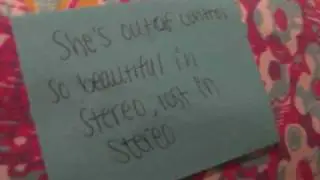 She's out of control
so beautiful in
stereo, lost in
stereo